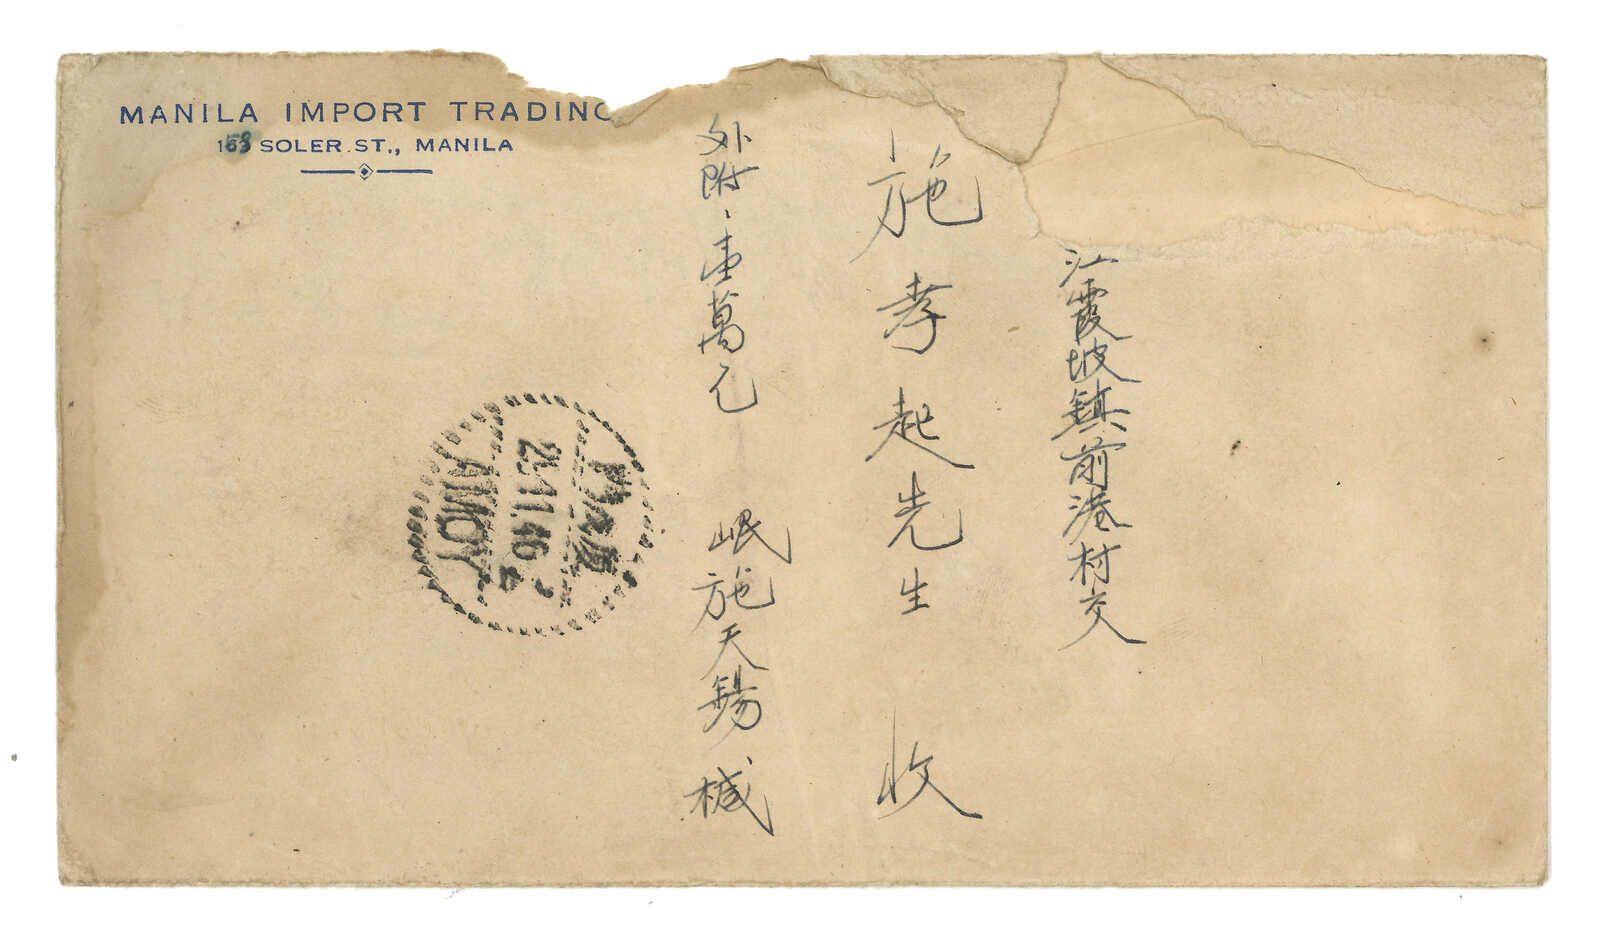 MANILA IMPORT TRADING
SOLER ST., MANILA
江霞坡鎮前港村交
施孝起先生 收
外附壹萬元 岷施天錫械
廈門
AMOY